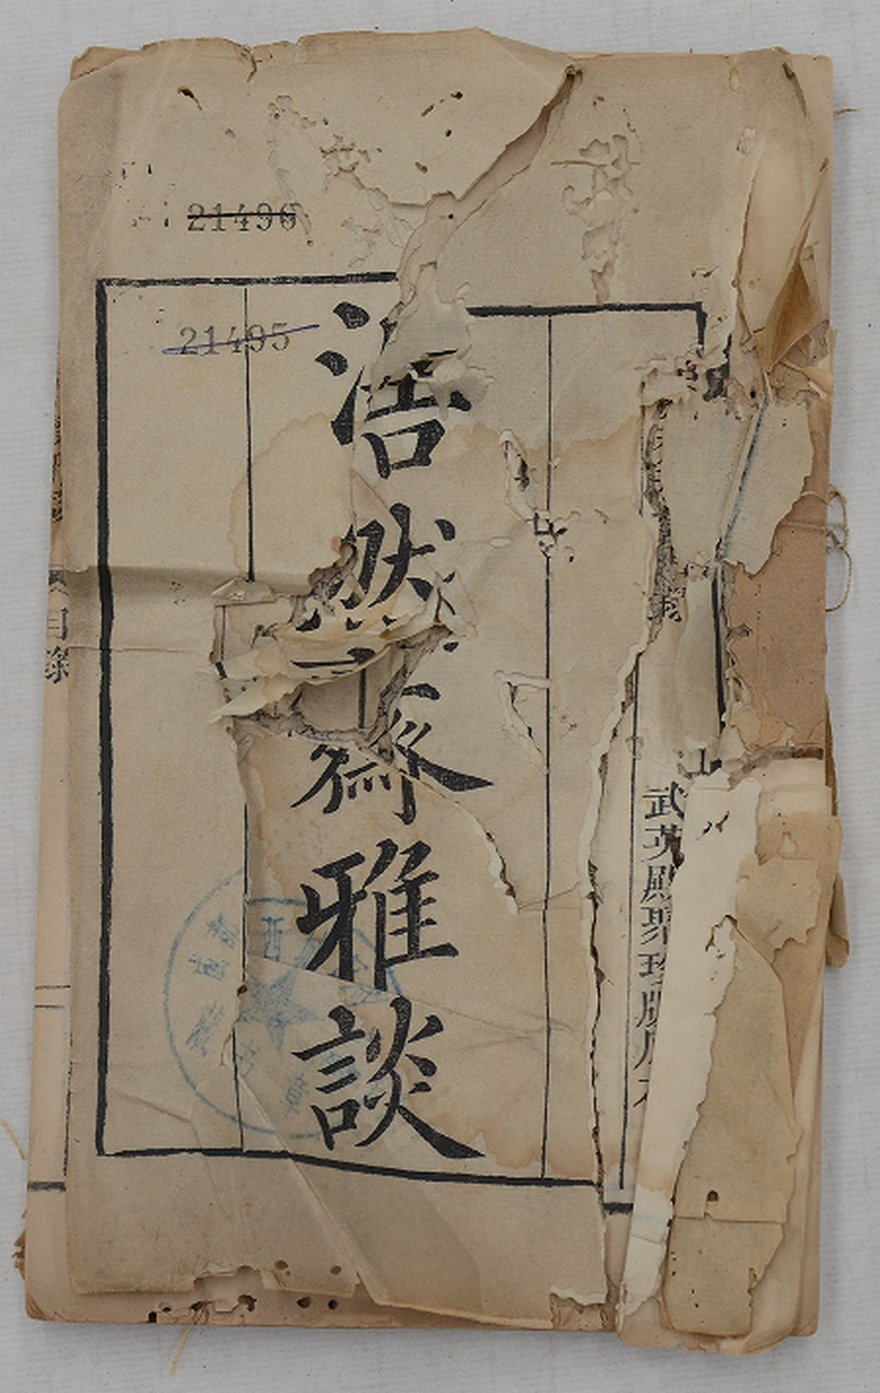 21496
21495
浩然齋雅談
武英殿聚珍版原本
目錄
西